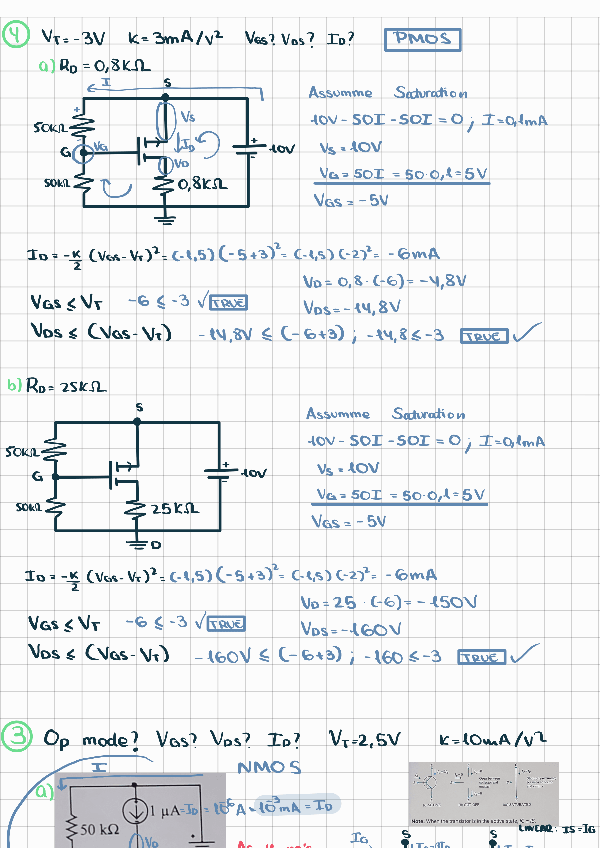 4 VT=-3V K=3mA/V² VGS? VDS? ID? PMOS
a) RD=0,8KΩ
I
S
50KΩ
+
VS
ID
G
VG
VD
50KΩ
0,8KΩ
+
-
10V
Assumme Saturation
10V-50I-50I=0; I=0,1mA
VS=10V
VG=50I=50·0,1=5V
VGS=-5V
ID=-K/2 (VGS-VT)²=(-1,5)(-5+3)²=(-1,5)(-2)²=-6mA
VD=0,8·(-6)=-4,8V
VGS≤VT -6≤-3 √ TRUE
VDS=-14,8V
VDS≤(VGS-VT) -14,8V≤(-6+3); -14,8≤-3 TRUE ✓
b) RD=25KΩ
S
50KΩ
G
50KΩ
25KΩ
D
+
-
10V
Assumme Saturation
10V-50I-50I=0; I=0,1mA
VS=10V
VG=50I=50·0,1=5V
VGS=-5V
ID=-K/2 (VGS-VT)²=(-1,5)(-5+3)²=(-1,5)(-2)²=-6mA
VD=25·(-6)=-150V
VGS≤VT -6≤-3 √ TRUE
VDS=-160V
VDS≤(VGS-VT) -160V≤(-6+3); -160≤-3 TRUE ✓
3 Op mode? VGS? VDS? ID? VT=2,5V K=10mA/V²
I
NMOS
a)
1 μA=ID=10⁻⁶A=10⁻³mA=ID
50 kΩ
VD
+
Note: When the transistor is in the active state,
LINEAR: IS=IG
IG
S
S